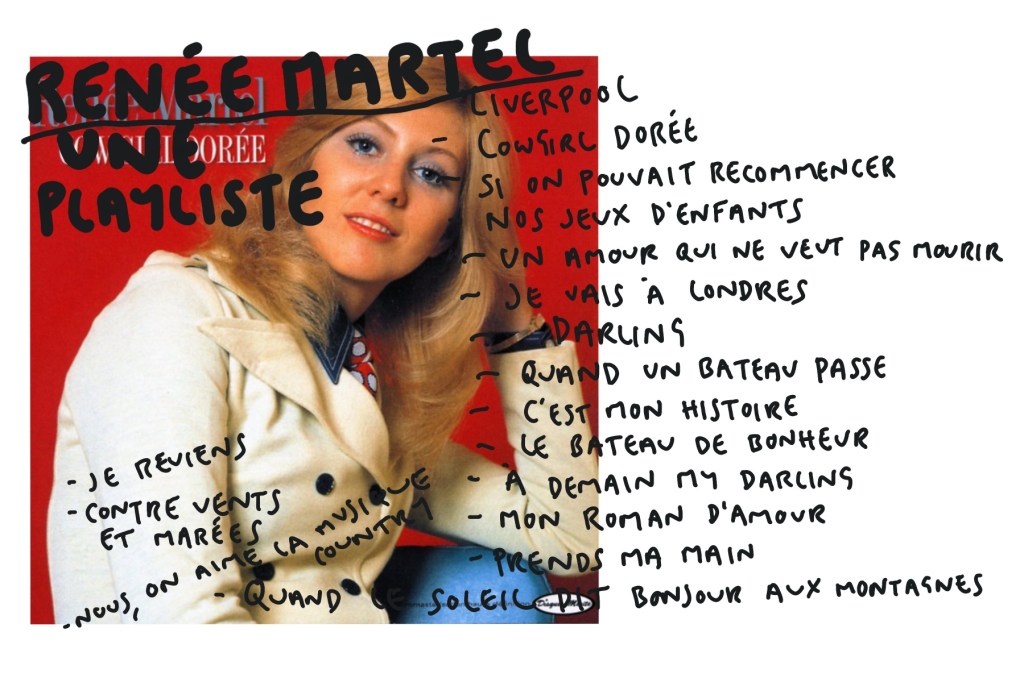 RENÉE MARTEL
UNE
PLAYLISTE
Renée Martel
COWGIRL DORÉE
LIVERPOOL
- COWGIRL DORÉE
- SI ON POUVAIT RECOMMENCER
NOS JEUX D'ENFANTS
- UN AMOUR QUI NE VEUT PAS MOURIR
- JE VAIS À LONDRES
- DARLING
- QUAND UN BATEAU PASSE
- C'EST MON HISTOIRE
- LE BATEAU DE BONHEUR
- À DEMAIN MY DARLING
- MON ROMAN D'AMOUR
- PRENDS MA MAIN
- QUAND LE SOLEIL DIT BONJOUR AUX MONTAGNES
- JE REVIENS
- CONTRE VENTS
ET MARÉES
- NOUS, ON AIME LA MUSIQUE
COUNTRY